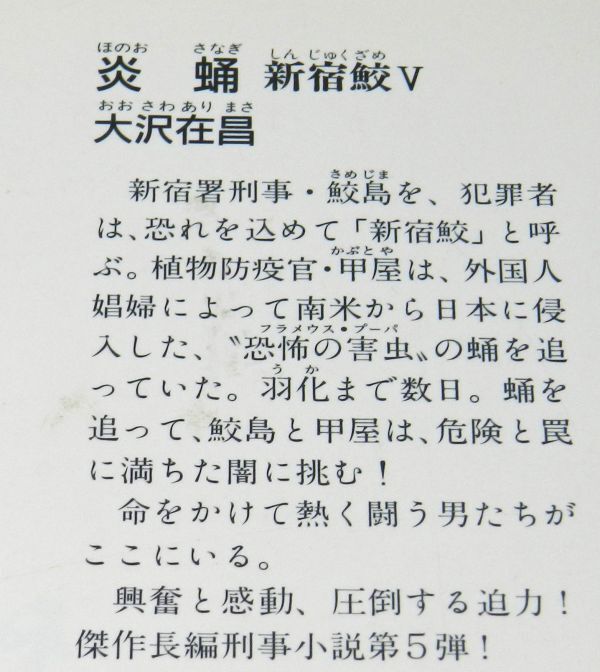 ほのお さなぎ しんじゅくざめ
炎 蛹 新宿鮫V
おおさわありまさ
大沢在昌
さめじま
新宿署刑事・鮫島を、犯罪者
は、恐れを込めて「新宿鮫」と呼
かぶとや
ぶ。植物防疫官・甲屋は、外国人
娼婦によって南米から日本に侵
フラメウス・プーパ
入した、〝恐怖の害虫〟の蛹を追
うか
っていた。羽化まで数日。蛹を
追って、鮫島と甲屋は、危険と罠
に満ちた闇に挑む！
命をかけて熱く闘う男たちが
ここにいる。
興奮と感動、圧倒する迫力！
傑作長編刑事小説第5弾！